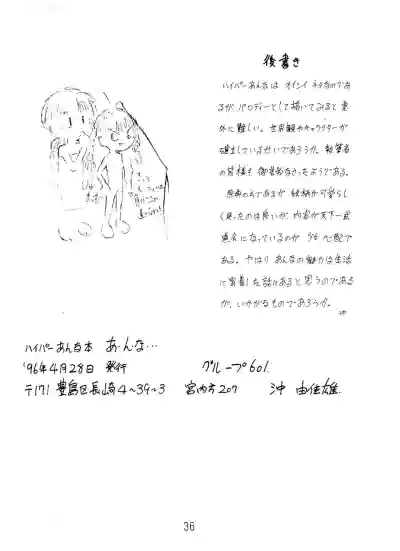 後書き
ハイパーあんなは オイシイ ネタなのであ
るが、パロディーとして描いてみると意
外に難しい。世界観やキャラクターが
確立しているせいであろうか。執筆者
の皆様も 御苦労なさったようである。
原典の方であるが 絵柄が可愛らし
く戻ったのは良いが、内容が天下一武
道会になっているのが 心配で
ある。やはり あんなの魅力は生活
に密着した話にあると思うのである
が、いかがなものであろうか。
ハイパーあんな本 あ・ん・な…
'96年4月28日 発行 グループ601.
〒171 豊島区長崎4〜39〜3 宮内方207 沖 由佳雄
36